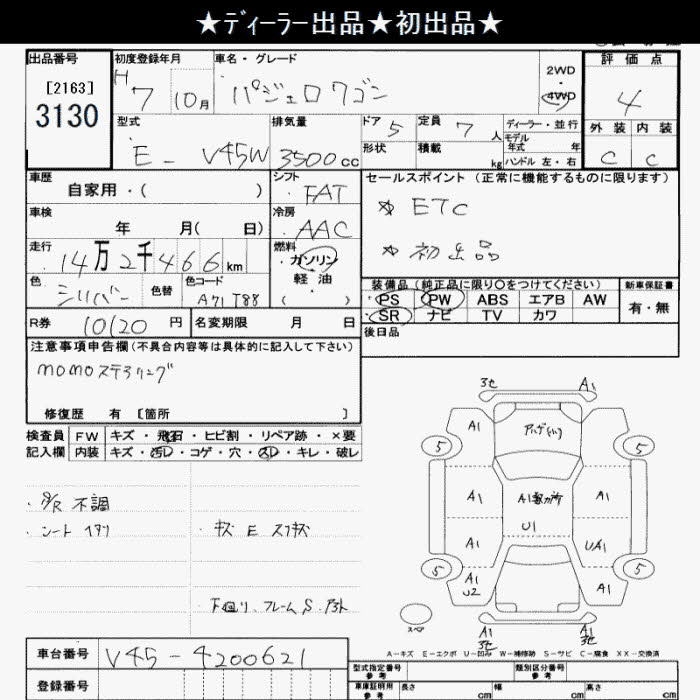 ★ディーラー出品★初出品★
出品番号
[2163]
3130
初度登録年月
H7 10月
車名・グレード
パジェロワゴン
2WD
・
4WD
評価点
4
外装 内装
C C
型式
E- V45W
排気量
3500cc
ドア 5
形状
定員 7人
積載 kg
ディーラー・並行
モデル年式 年
ハンドル 左・右
車歴
自家用・( )
シフト
FAT
セールスポイント (正常に機能するものに限ります)
☆ ETC
☆ 初出品
車検
年 月( 日)
冷房
AAC
走行
14万2千466km
燃料
ガソリン
軽油
・
( )
色
シルバー
色替
色コード
A71 T88
装備品 (純正品に限り○をつけてください)
PS PW ABS エアB AW
SR ナビ TV カワ
新車保証書
有・無
後日品
R券 10120円
名変期限 月 日
注意事項申告欄(不具合内容等は具体的に記入して下さい)
momoステアリング
修復歴 有 [箇所 ]
検査員記入欄
FW キズ・飛石・ヒビ割・リペア跡・×要
内装 キズ・汚レ・コゲ・穴・スレ・キレ・破レ
・S/R 不調
・シート ヘタリ
・キズ E スリキズ
・下回り、フレーム S・アト
3セ A1
A1
アンダガイド
5 5
A1 A1軽カ所 A1
U1
A1 UA1
5 5
A1
U2
A1
スペア
A1
3セ
A1
3セ
A-キズ E-エクボ U-凹み W-補修跡 S-サビ C-腐食 XX-交換済
車台番号
V45-4200621
登録番号
型式指定番号
参考
類別区分番号
参考
車庫証明用
参考
長さ cm 幅 cm 高さ cm